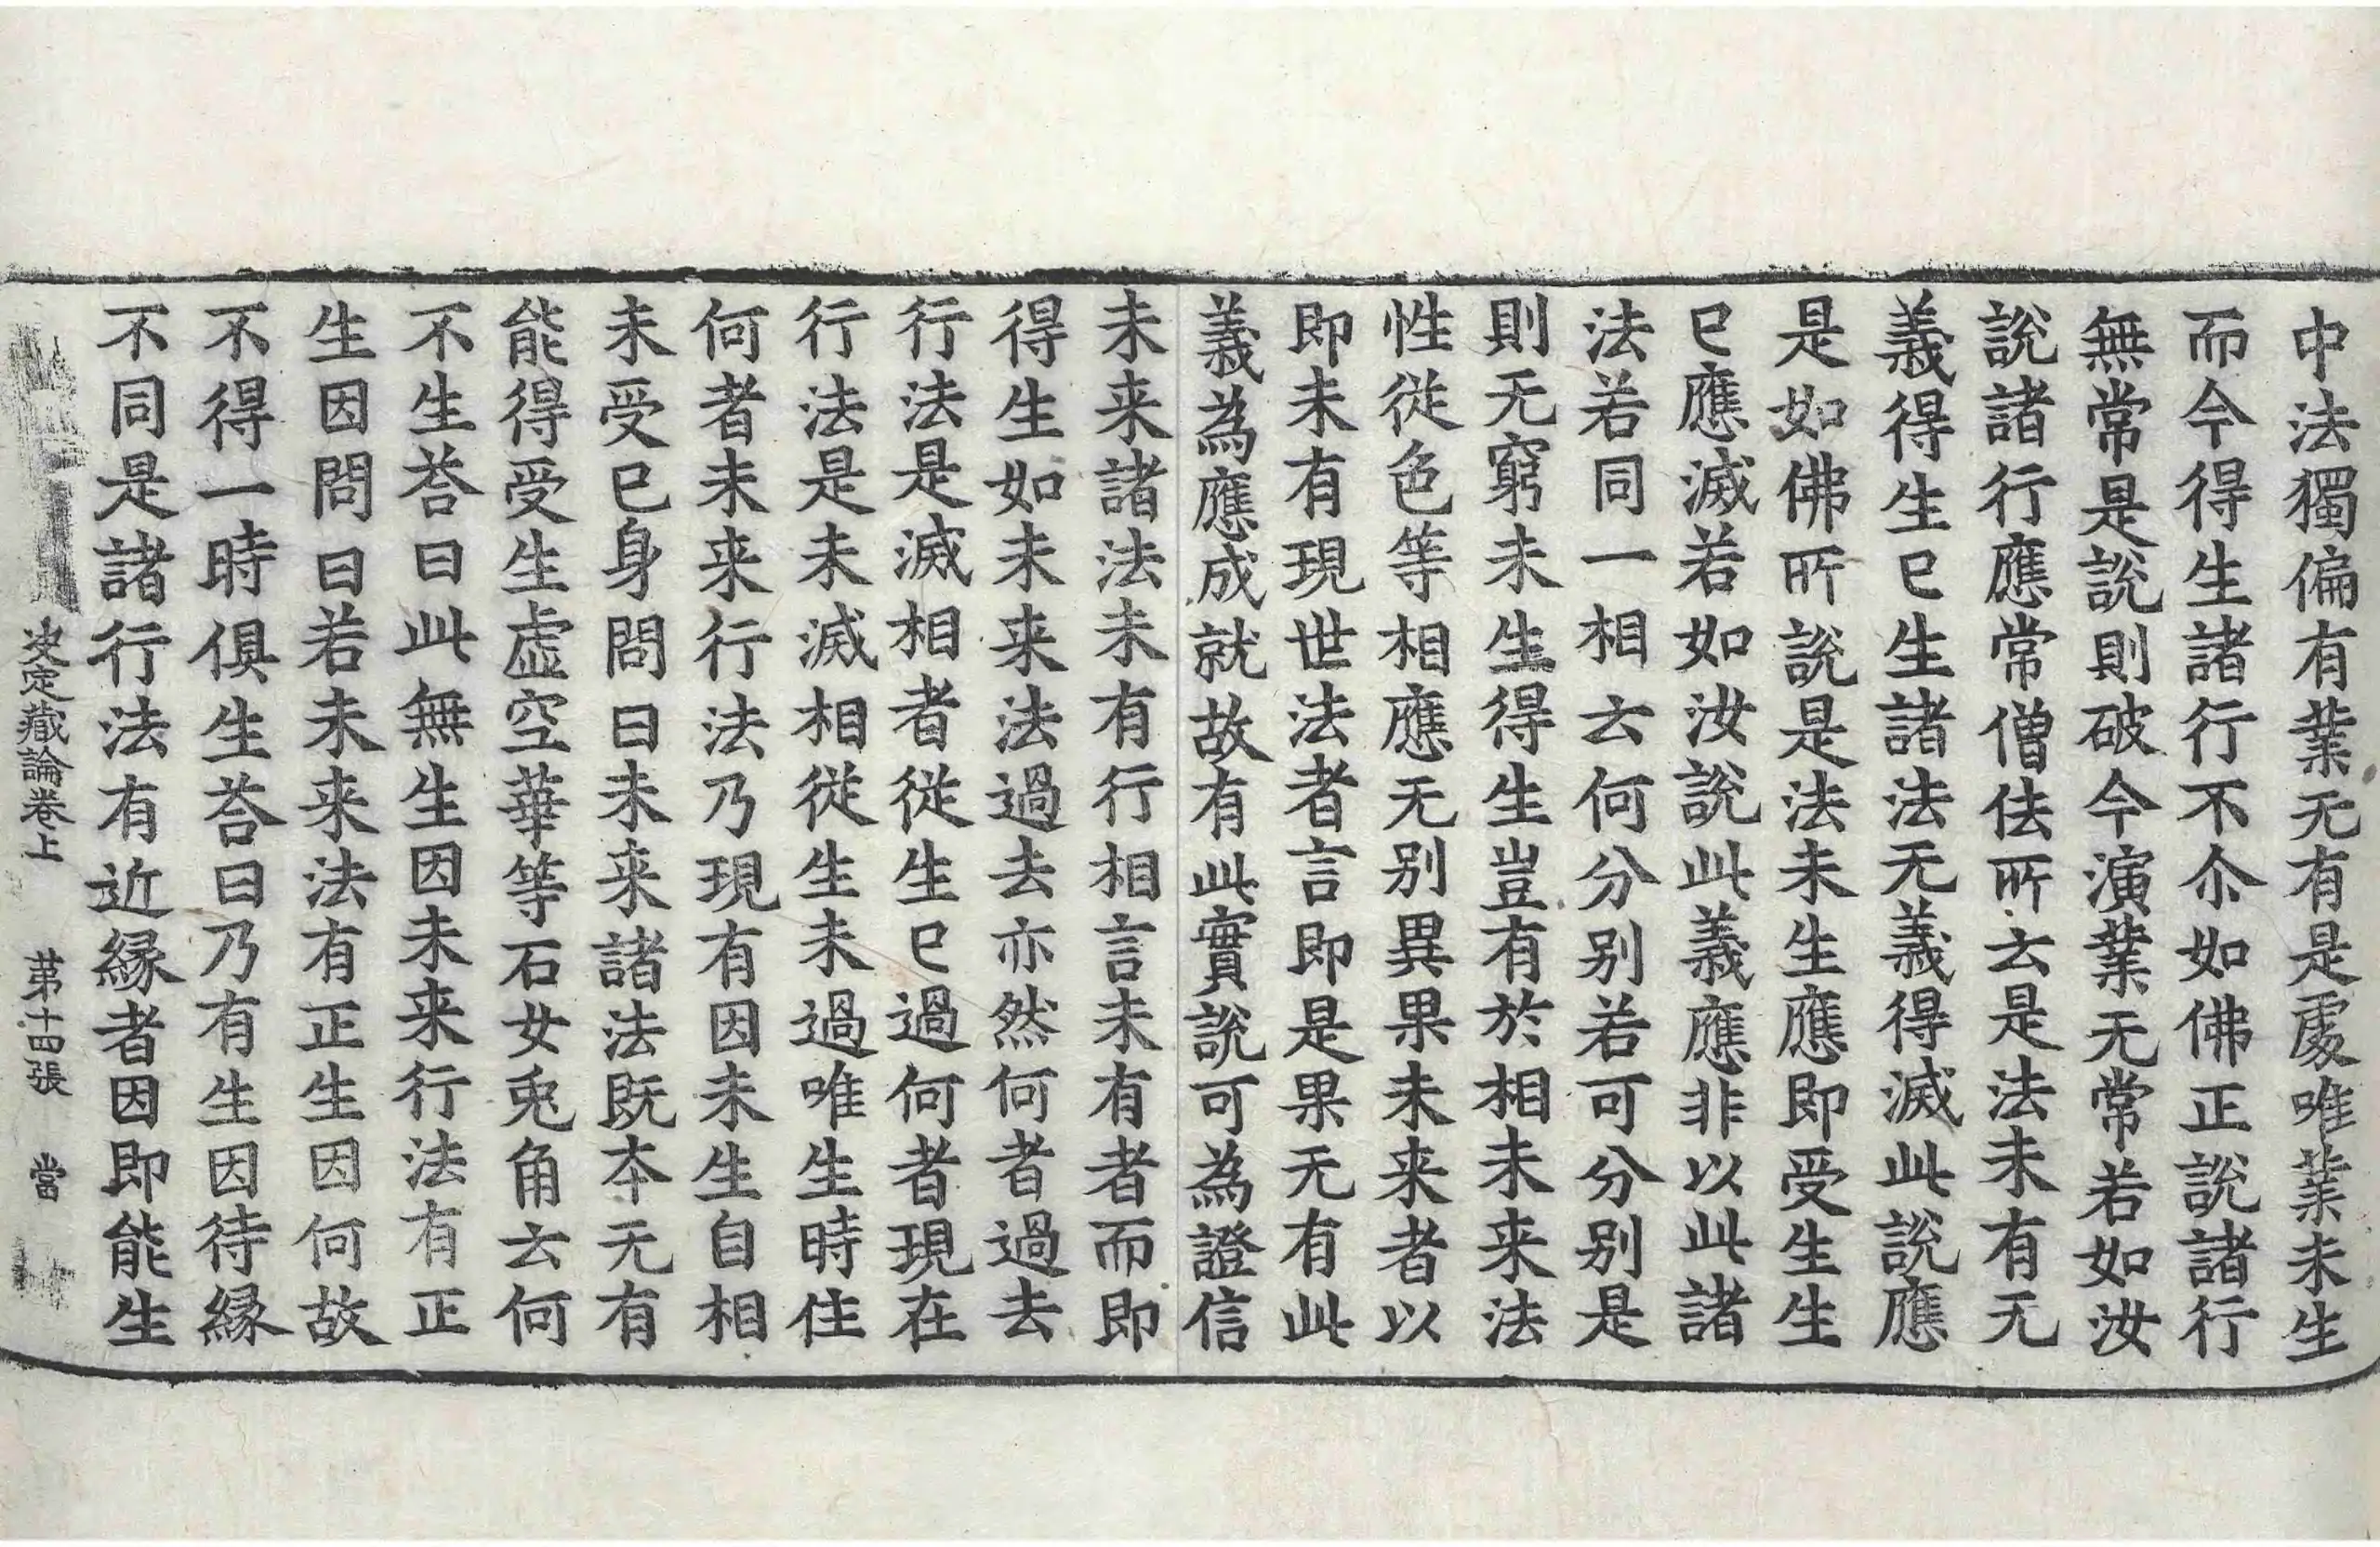 中法獨偏有業无有是處唯業未生
而今得生諸行不尒如佛正說諸行
無常是說則破今演業无常若如汝
說諸行應常僧佉所云是法未有无
義得生已生諸法无義得滅此說應
是如佛所說是法未生應即受生生
已應滅若如汝說此義應非以此諸
法若同一相云何分别若可分别是
則无窮未生得生豈有於相未来法
性從色等相應无别異果未来者以
即未有現世法者言即是果无有此
義為應成就故有此實說可為證信
未来諸法未有行相言未有者而即
得生如未来法過去亦然何者過去
行法是滅相者從生已過何者現在
行法是未滅相從生未過唯生時住
何者未来行法乃現有因未生自相
未受已身問曰未来諸法既本无有
能得受生虛空華等石女兎角云何
不生荅曰此無生因未来行法有正
生因問曰若未来法有正生因何故
不得一時俱生荅曰乃有生因待縁
不同是諸行法有近縁者因即能生
决定藏論卷上　第十四張　當